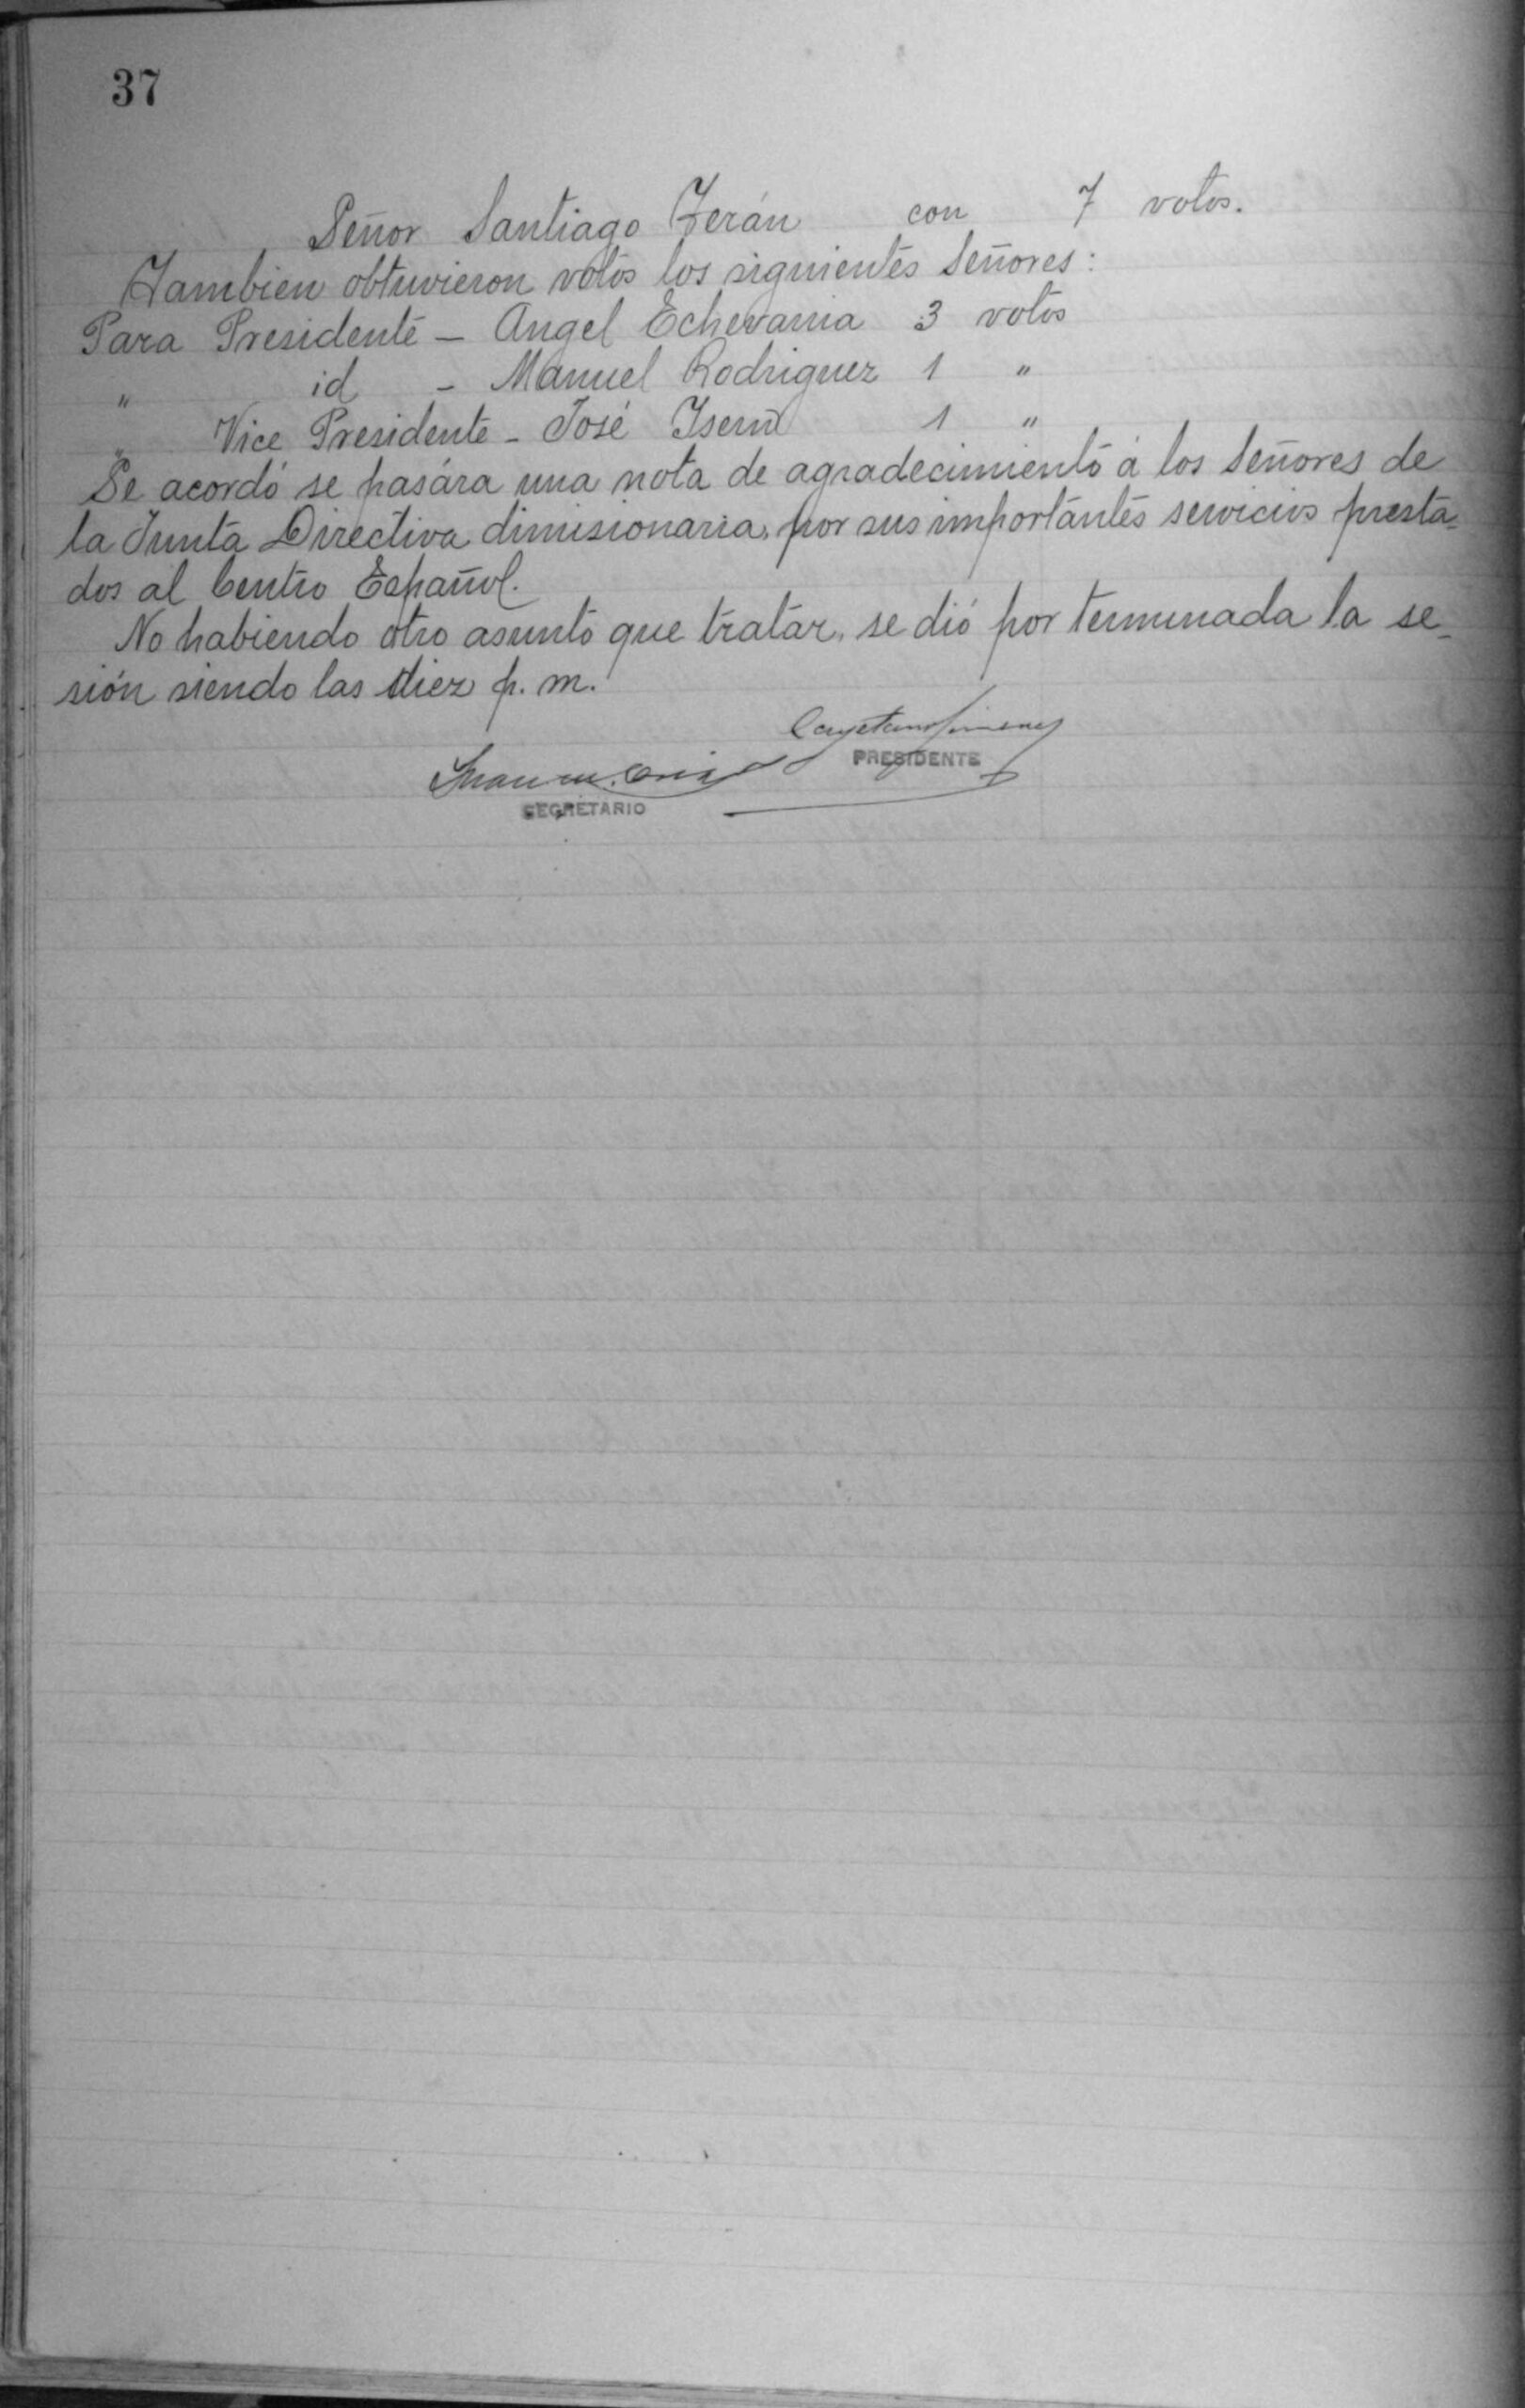 37
Señor Santiago Terán con 7 votos.
Tambien obtuvieron votos los siguientes Señores:
Para Presidente - Angel Echevarria 3 votos
" id - Manuel Rodriguez 1 "
" Vice Presidente - José Isern 1 "
Se acordó se pasára una nota de agradecimiento á los Señores de
la Junta Directiva dimisionaria, por sus importantes servicios presta-
dos al Centro Español.
No habiendo otro asunto que tratar, se dió por terminada la se-
sión siendo las diez p. m.
Cayetano Jimenez
PRESIDENTE
Juan M.
SECRETARIO